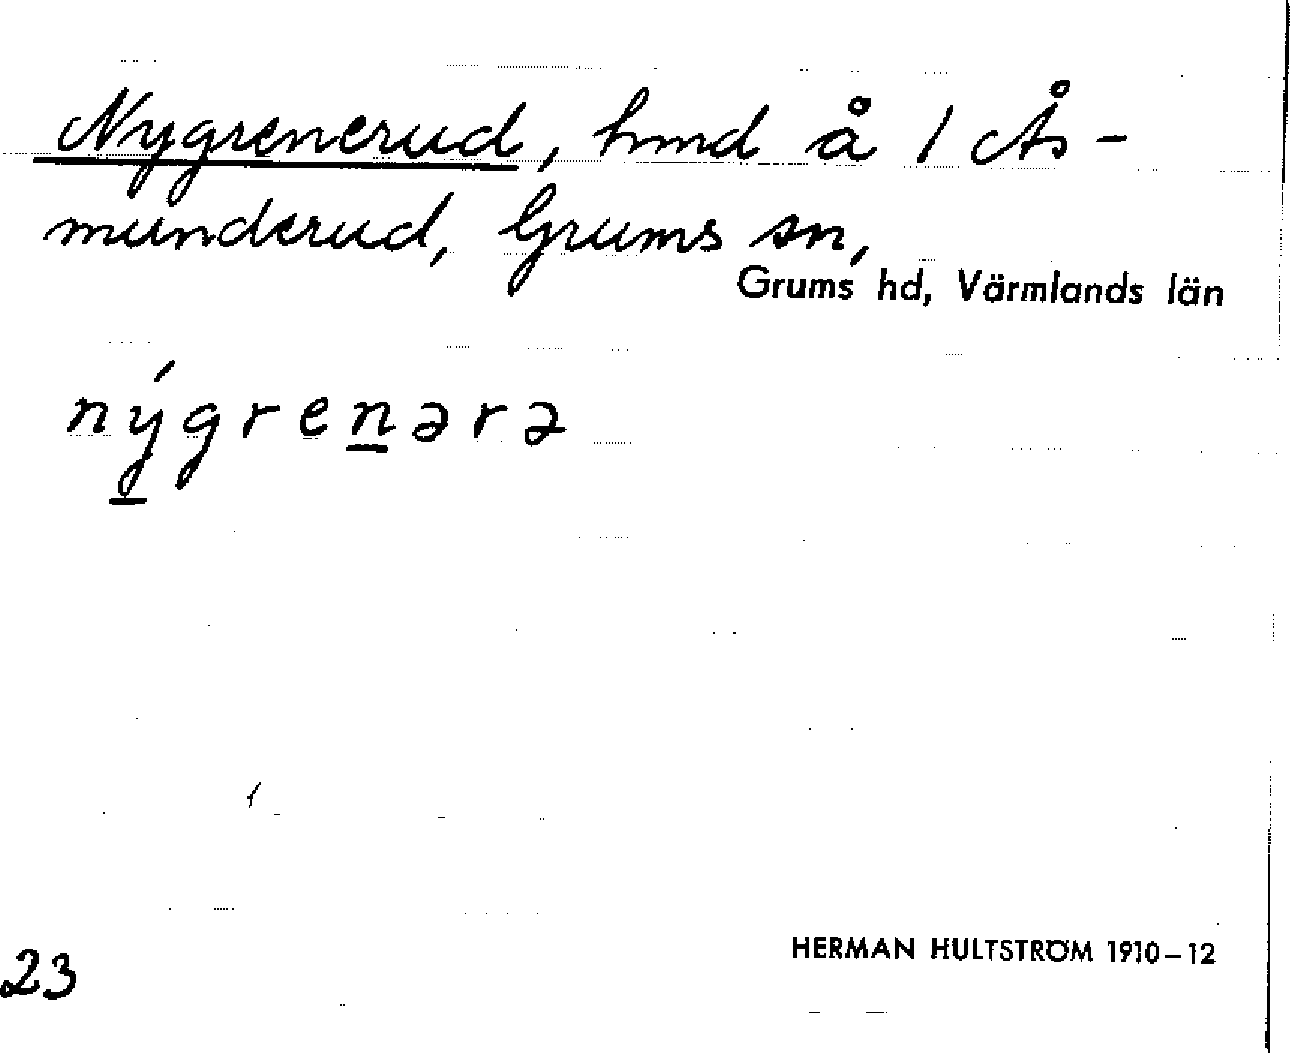 Nygrenerud, hmd å 1 Ås-
munderud, Grums sn,
Grums hd, Värmlands län
nýgrenərə
HERMAN HULTSTRÖM 1910–12
23